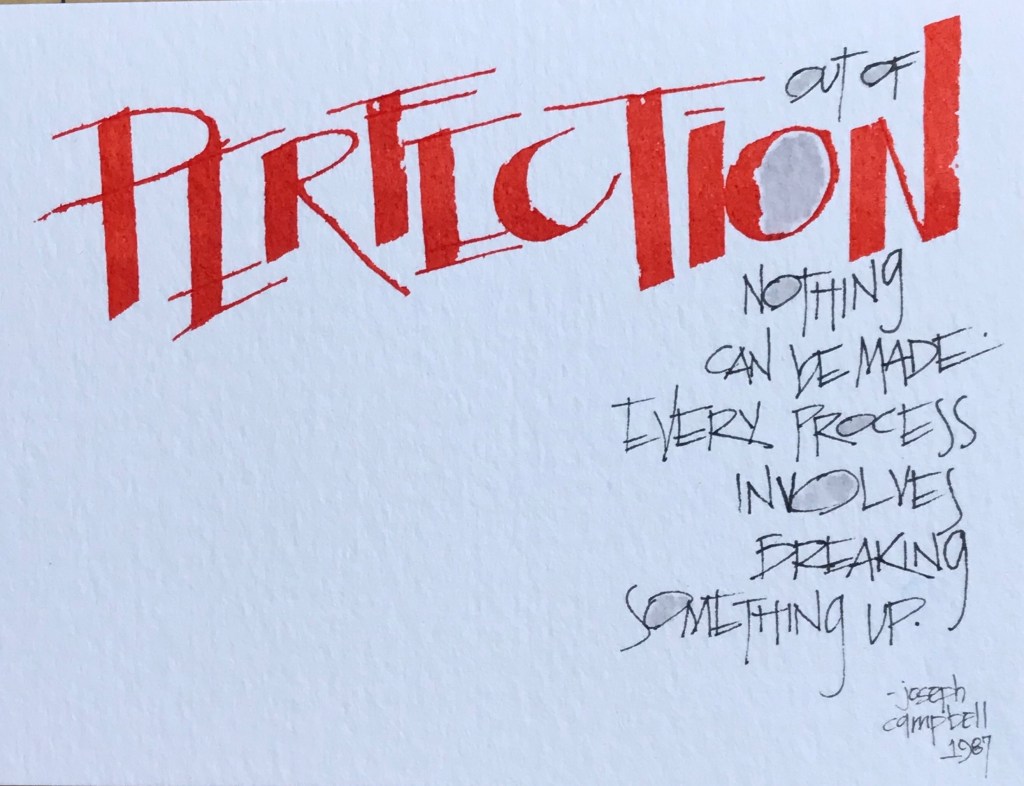 OUT OF
PERFECTION
NOTHING
CAN BE MADE.
EVERY PROCESS
INVOLVES
BREAKING
SOMETHING UP.
-joseph
campbell
1987